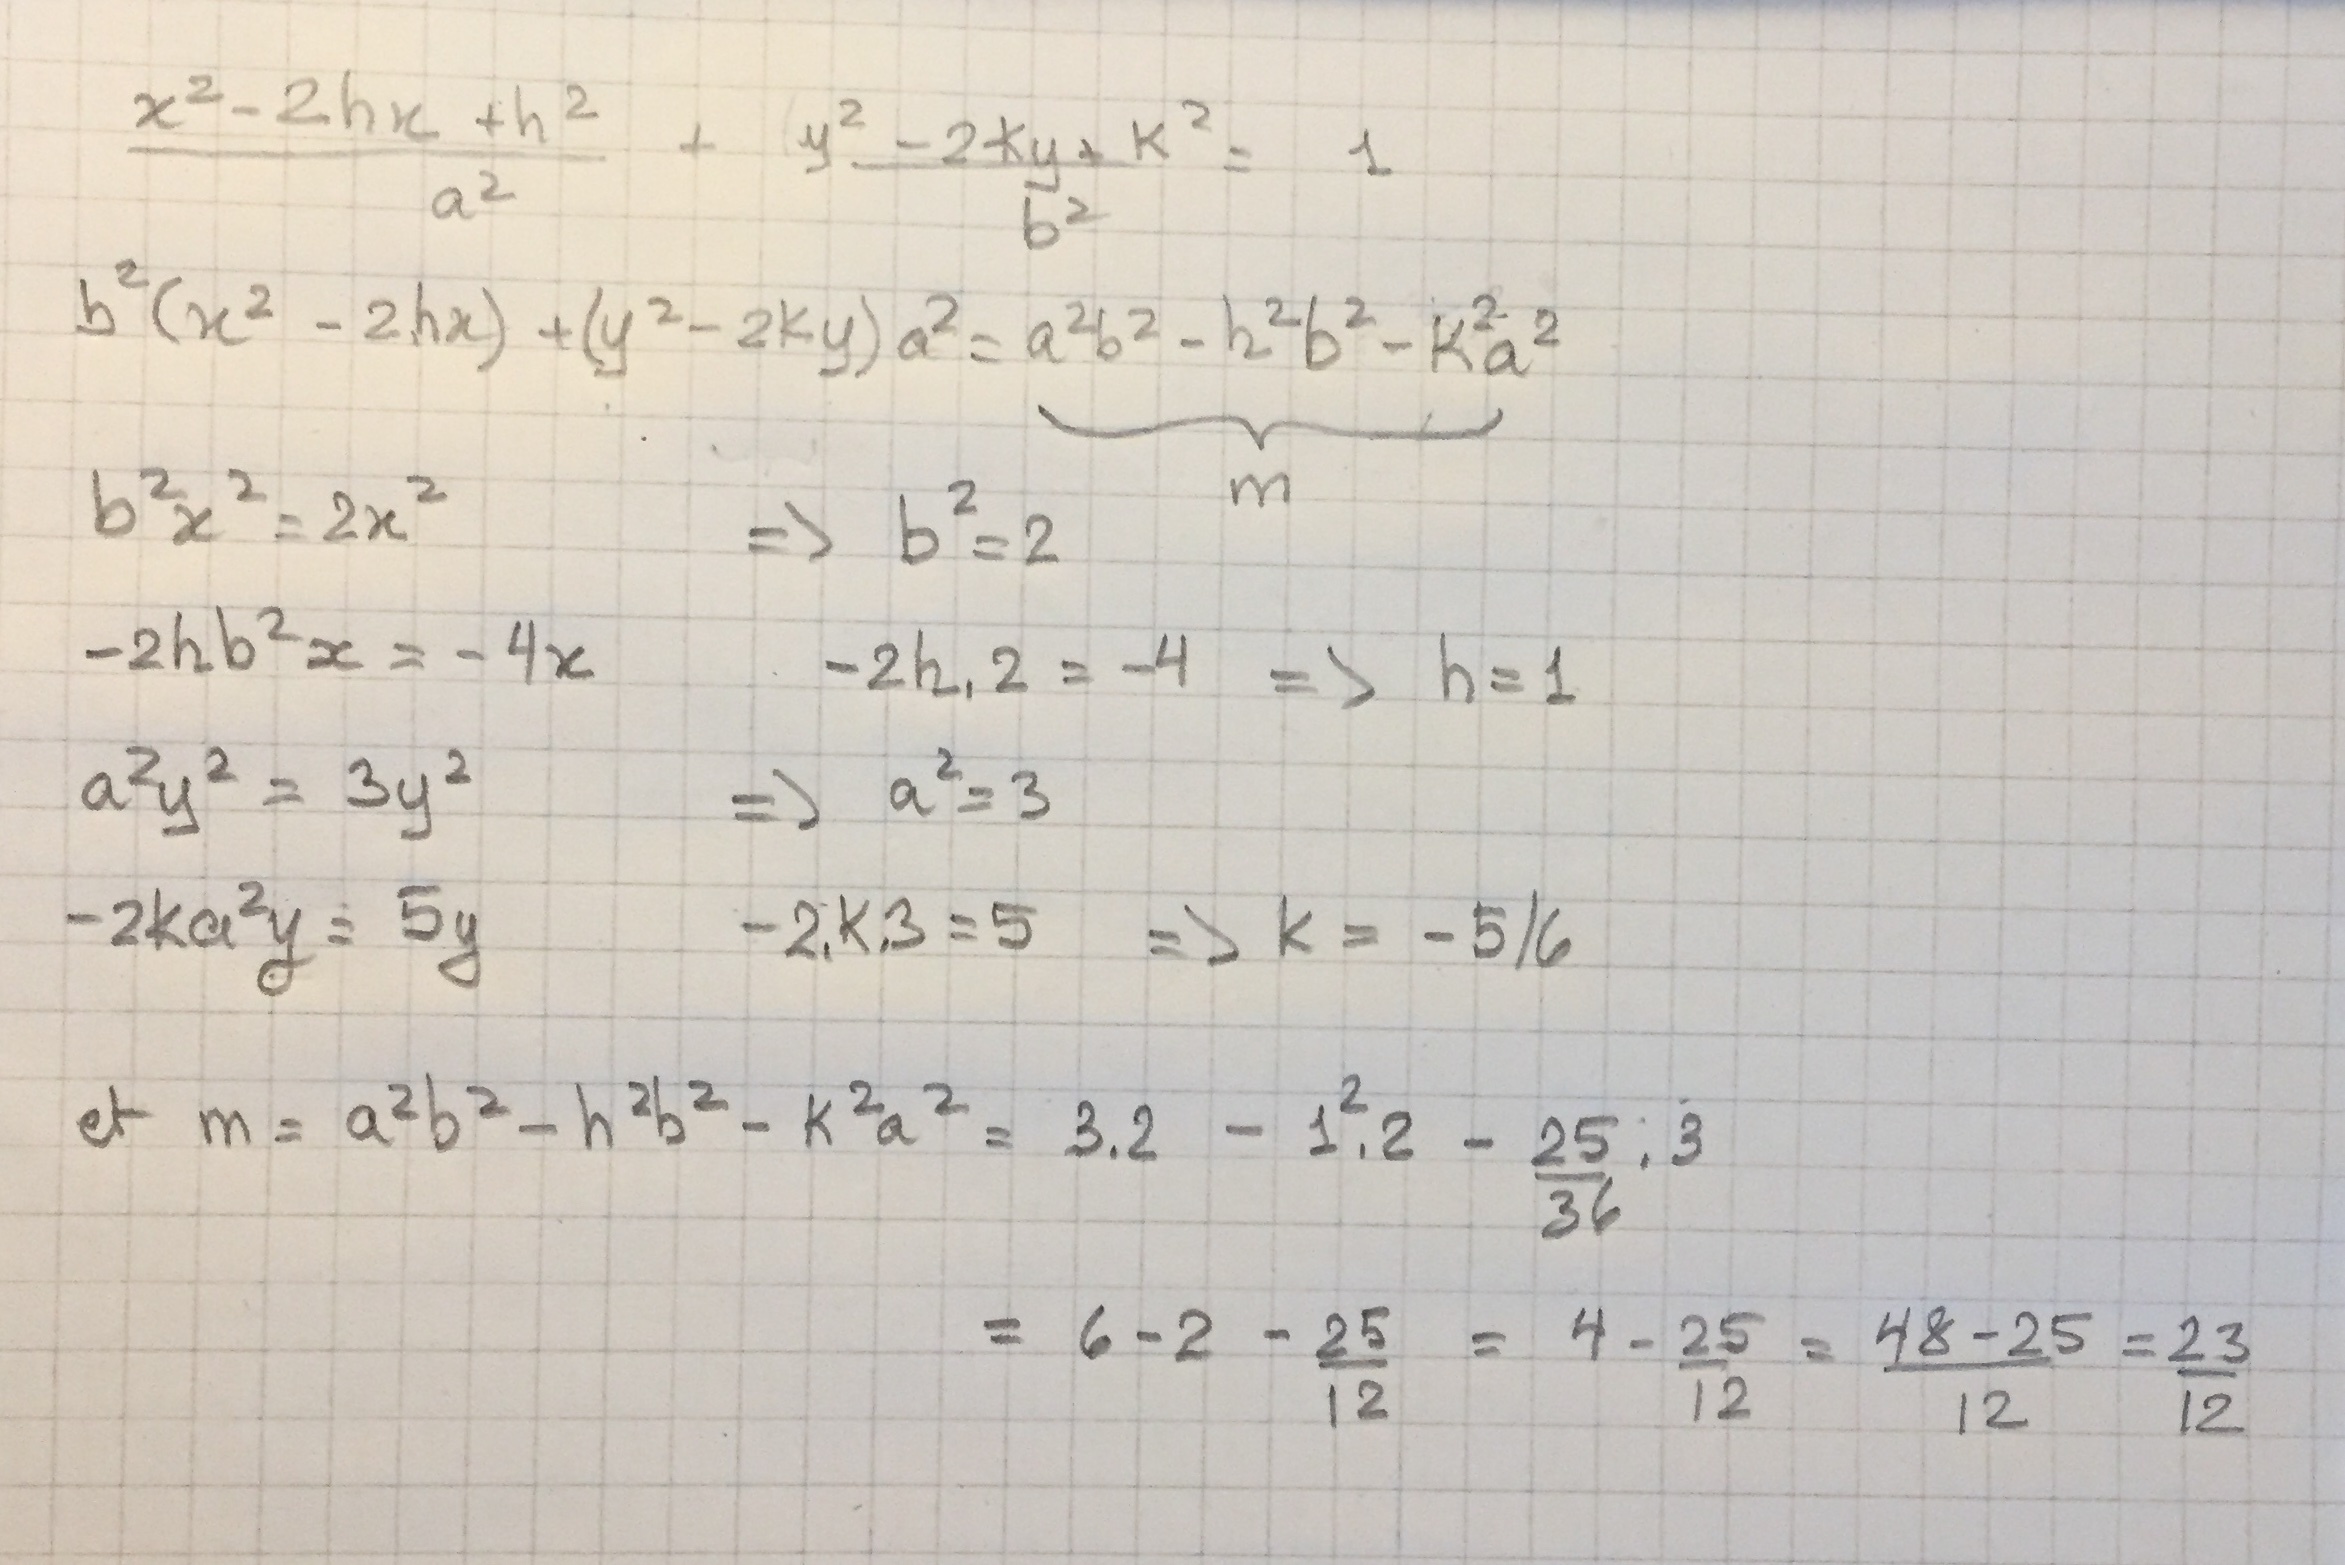 x² - 2hx + h² / a² + y² - 2ky + k² / b² = 1
b²(x² - 2hx) + (y² - 2ky) a² = a²b² - h²b² - k²a²
m
b²x² = 2x² => b² = 2
-2hb²x = -4x -2h.2 = -4 => h = 1
a²y² = 3y² => a² = 3
-2ka²y = 5y -2.k.3 = 5 => k = -5/6
et m = a²b² - h²b² - k²a² = 3.2 - 1².2 - 25/36 . 3
= 6 - 2 - 25/12 = 4 - 25/12 = 48-25/12 = 23/12